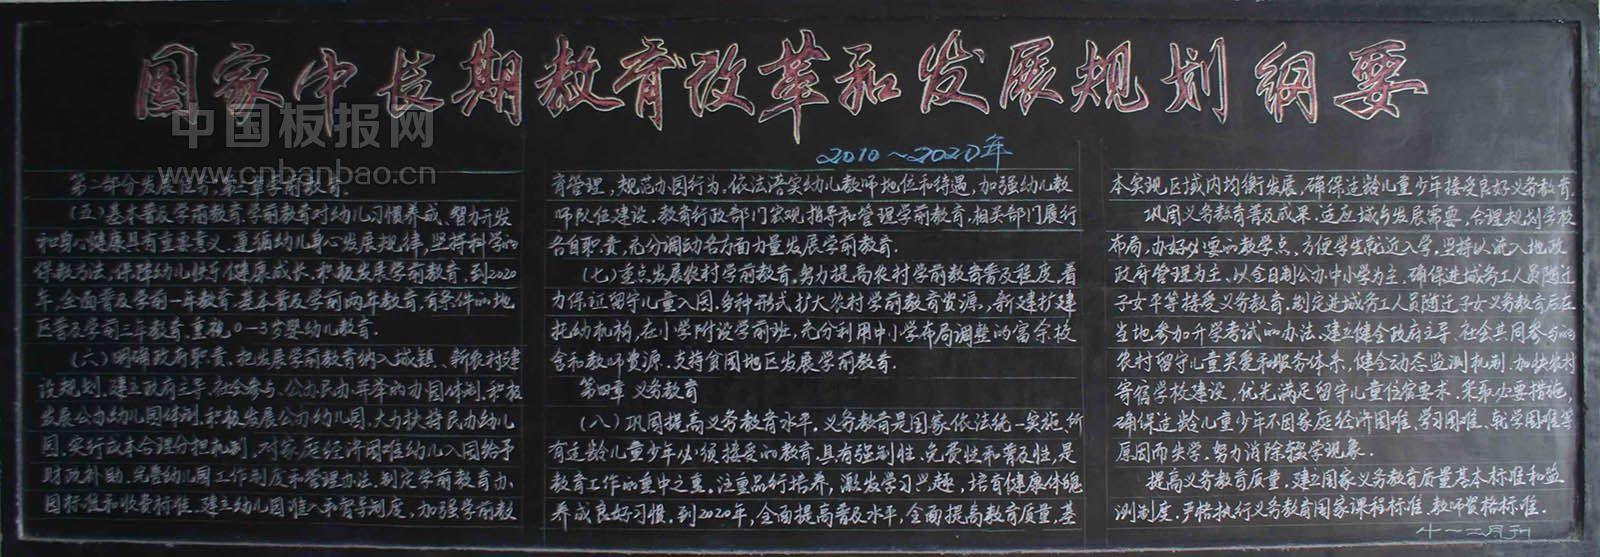 国家中长期教育改革和发展规划纲要
中国板报网
www.cnbanbao.cn
2010～2020年
第二部分发展任务,第三章学前教育.
(五)基本普及学前教育.学前教育对幼儿习惯养成、智力开发
和身心健康具有重要意义.遵循幼儿身心发展规律,坚持科学的
保教方法,保障幼儿快乐健康成长.积极发展学前教育,到2020
年,全面普及学前一年教育.基本普及学前两年教育,有条件的地
区普及学前三年教育.重视0-3岁婴幼儿教育.
(六)明确政府职责.把发展学前教育纳入城镇、新农村建
设规划.建立政府主导.社会参与.公办民办并举的办园体制.积极
发展公办幼儿园体制.积极发展公办幼儿园,大力扶持民办幼儿
园.实行成本合理分担机制.对家庭经济困难幼儿入园给予
财政补助.完善幼儿园工作制度和管理办法.制定学前教育办
园标准和收费标准.建立幼儿园准入和督导制度,加强学前教
育管理,规范办园行为.依法落实幼儿教师地位和待遇,加强幼儿教
师队伍建设.教育行政部门宏观指导和管理学前教育.相关部门履行
各自职责,充分调动各方面力量发展学前教育.
(七)重点发展农村学前教育.努力提高农村学前教育普及程度.着
力保证留守儿童入园.多种形式扩大农村学前教育资源,新建扩建
托幼机构,在小学附设学前班,充分利用中小学布局调整的富余校
舍和教师资源.支持贫困地区发展学前教育.
第四章 义务教育
(八)巩固提高义务教育水平.义务教育是国家依法统一实施、所
有适龄儿童少年必须接受的教育.具有强制性、免费性和普及性,是
教育工作的重中之重。注重品行培养,激发学习兴趣,培育健康体魄
养成良好习惯.到2020年,全面提高普及水平,全面提高教育质量,基
本实现区域内均衡发展,确保适龄儿童少年接受良好义务教育.
巩固义务教育普及成果.适应城乡发展需要,合理规划学校
布局,办好必要的教学点,方便学生就近入学.坚持以流入地政
政府管理为主、以全日制公办中小学为主,确保进城务工人员随迁
子女平等接受义务教育.制定进城务工人员随迁子女义务教育后在
当地参加升学考试的办法.建立健全政府主导、社会共同参与的
农村留守儿童关爱和服务体系,健全动态监测机制.加快农村
寄宿学校建设,优先满足留守儿童住宿要求.采取必要措施,
确保适龄儿童少年不因家庭经济困难、学习困难、就学困难等
原因而失学.努力消除辍学现象.
提高义务教育质量.建立国家义务教育质量基本标准和监
测制度.严格执行义务教育国家课程标准、教师资格标准.
十一~二月刊